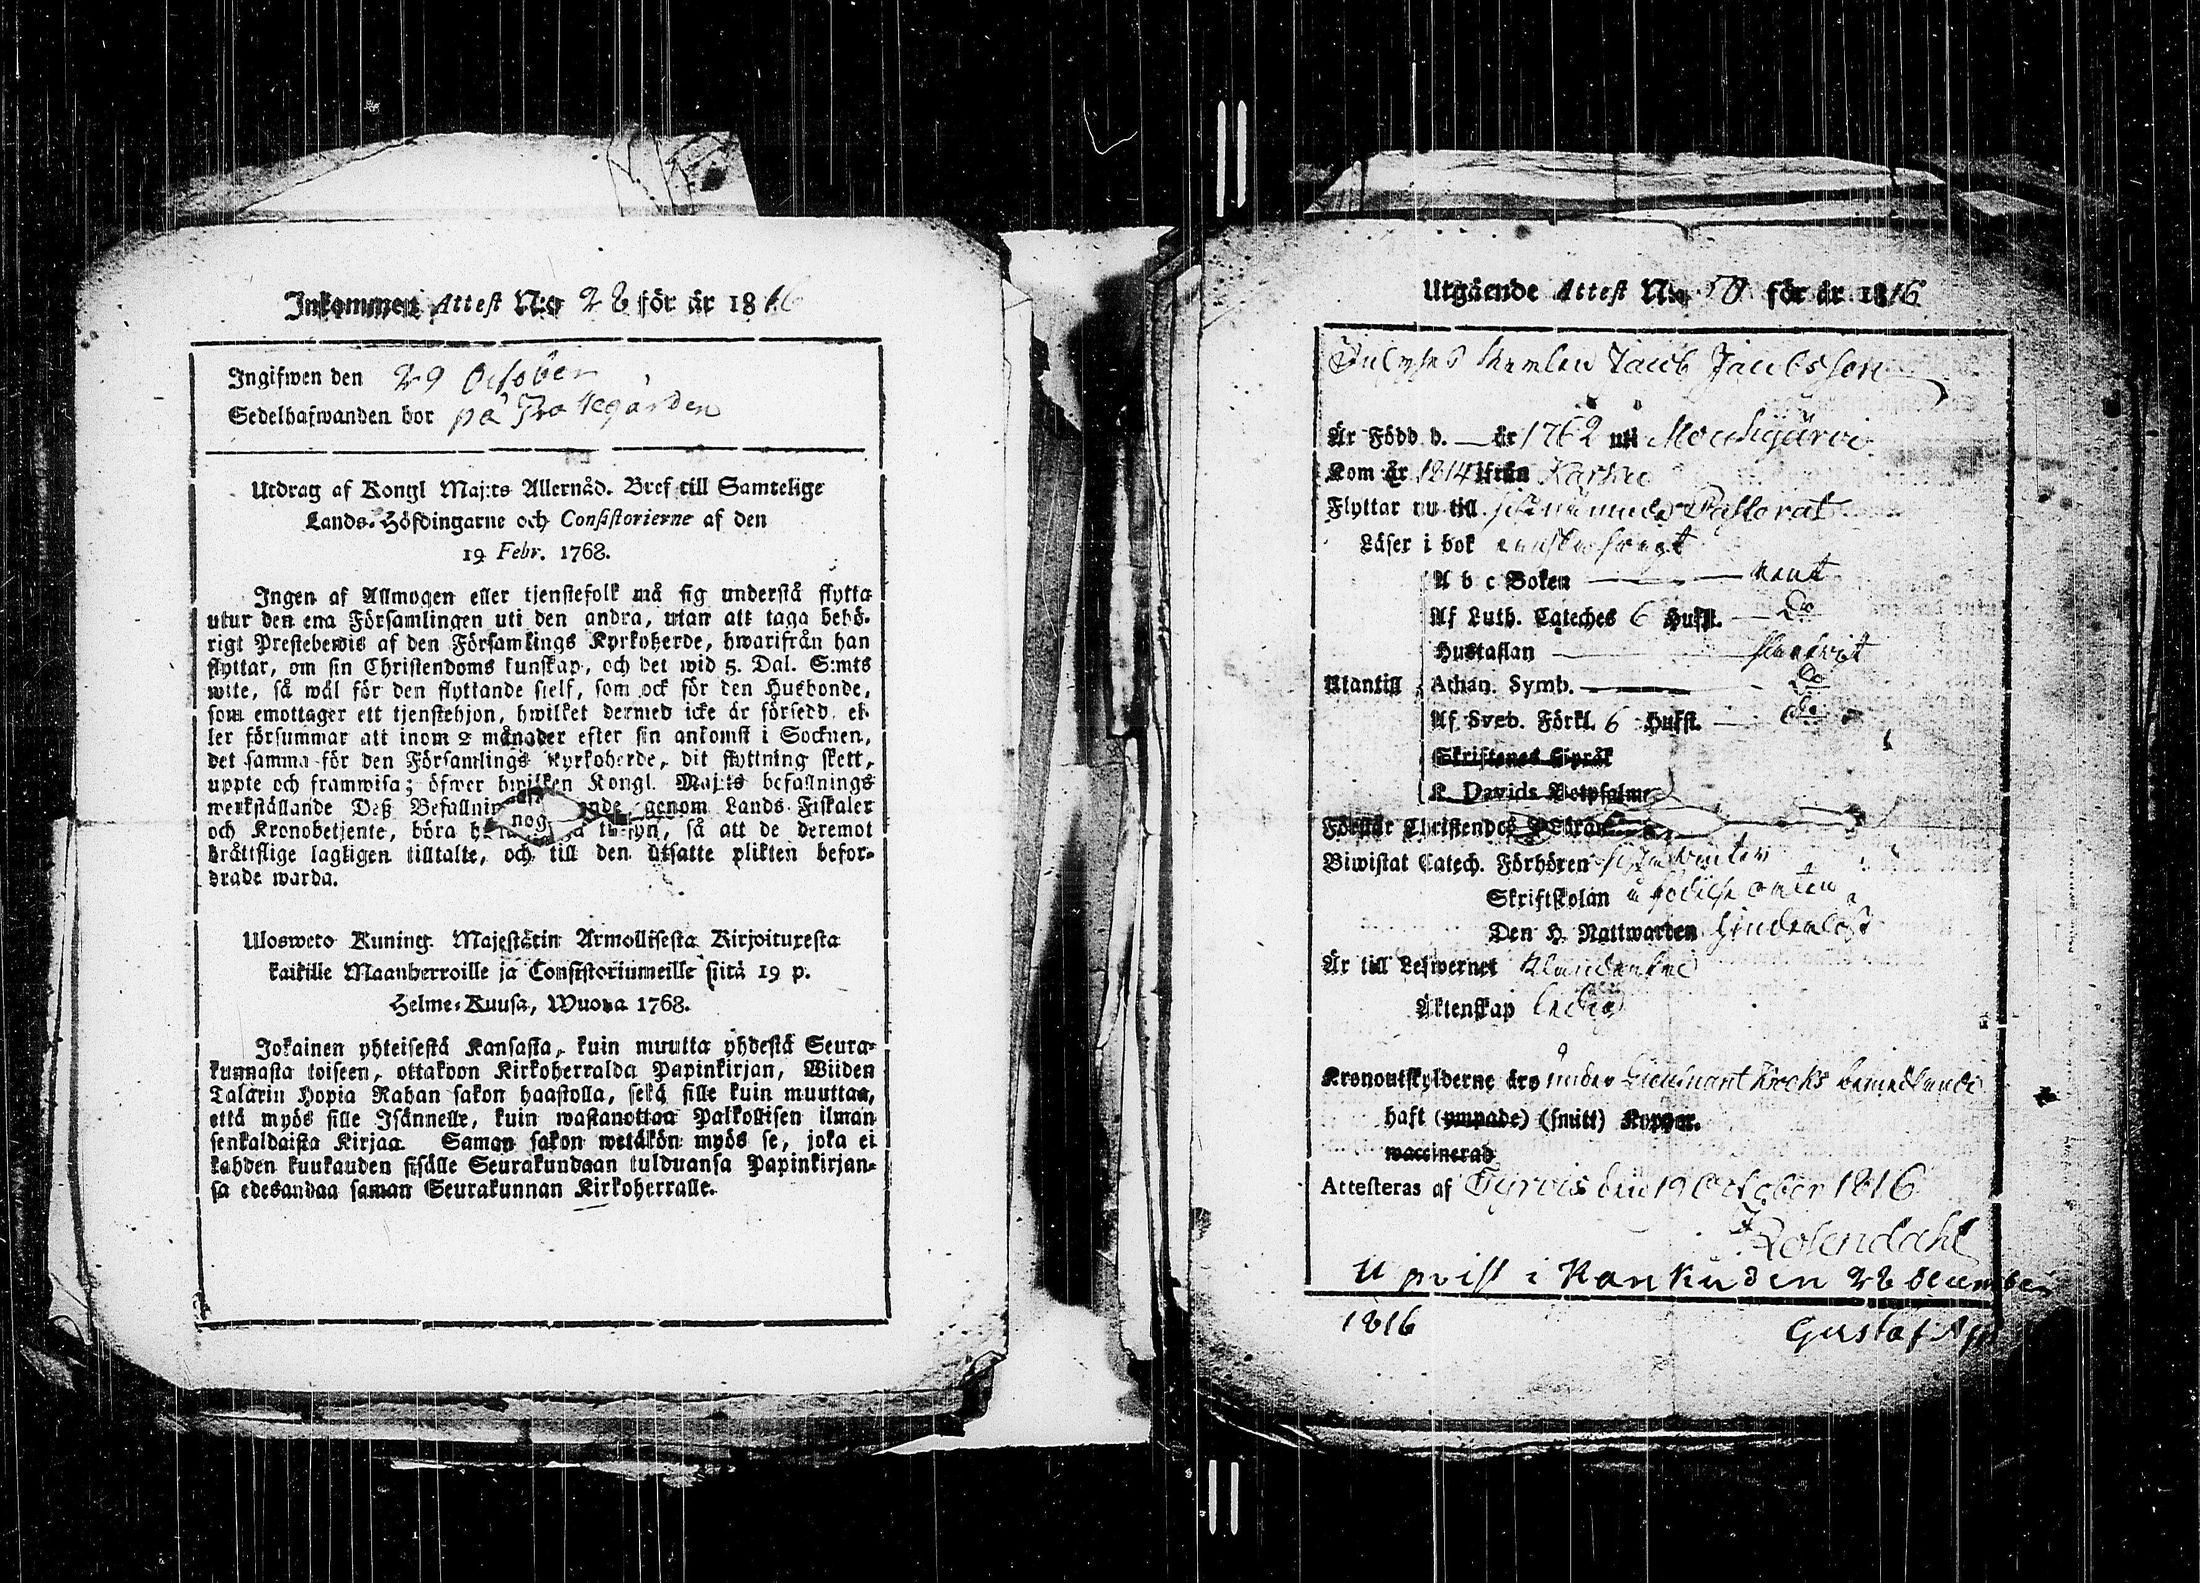 Inkommen Attest N:o 28 för år 1816
Ingifwen den 29 October
Sedelhafwanden bor på
Utdrag af Kongl Maj:ts Allernåd. Bref till Samtelige
Lands-Höfdingarne och Consistorierne af den
19 Febr. 1768.
Ingen af Allmogen eller tjenstefolk må sig understå flytta
utur den ena Församlingen uti den andra, utan att taga behö-
rigt Prestebewis af den Församlings Kyrkoherde, hwarifrån han
flyttar, om sin Christendoms kunskap, och det wid 5. Dal. S:mts
wite, så wäl för den flyttande sielf, som ock för den Husbonde,
som emottager ett tjenstehjon, hwilket dermed icke är försedd, el-
ler försummar att inom 2 månader efter sin ankomst i Socknen,
det samma för den Församlings Kyrkoherde, dit flyttning skett,
uppte och framwisa; öfwer hwilken Kongl. Maj:ts befallnings
werkställande Deß genom Lands-Fiskaler
och Kronobetjente, böra nog så att de deremot
bråttslige lagligen tilltalte, och till den utsatte plikten befor-
drade warda.
Ulosweto Kuning. Majestätin Armollisesta Kirjoituxesta
kaikille Maanherroille ja Consistoriumeille siitä 19 p.
Helme-Kuusa, Wuona 1768.
Jokainen yhteisestä Kansasta, kuin muutta yhdestä Seura-
kunnasta toiseen, ottakoon Kirkoherralda Papinkirjan, Wiiden
Talarin Hopia Rahan sakon haastolla, sekä sille kuin muuttaa,
että myös sille Isännelle, kuin wastanottaa Palkollisen ilman
senkaldaista Kirjaa. Saman sakon wetäkön myös se, joka ei
kahden kuukauden sisälle Seurakundaan tulduansa Papinkirjan-
sa edesandaa saman Seurakunnan Kirkoherralle.
Utgående Attest N:o 50 för år 1816
Jacob Jacobsson
Är Född d. — år 1762 uti Mouhijärvi
Kom år 1814 ifrån Karkku
Flyttar nu till Pastorat
Läser i bok
A b c Boken — nant
Af Luth. Cateches 6 Hufst. — Do
Hustaflan —
Utantill Athan. Symb. — Do
Af Sveb. Förkl. 6 Hufst. — do
Skriftenes Språk
K. Davids Botpsalmer
Förstår Christendoms Läran
Biwistat Catech. Förhören
Skriftskolan
Den H. Nattwarden hinderlöst
Är till Lefwernet Klanderfri
Äktenskap ledig
Kronoutskylderne äro under Lieutnant
haft (ympade) (smitt) Koppor.
waccinerad
Attesteras af Tyrvis den 19 October 1816
Rosendahl
Upvist i Karkku den 28 December
1816 Gustaf